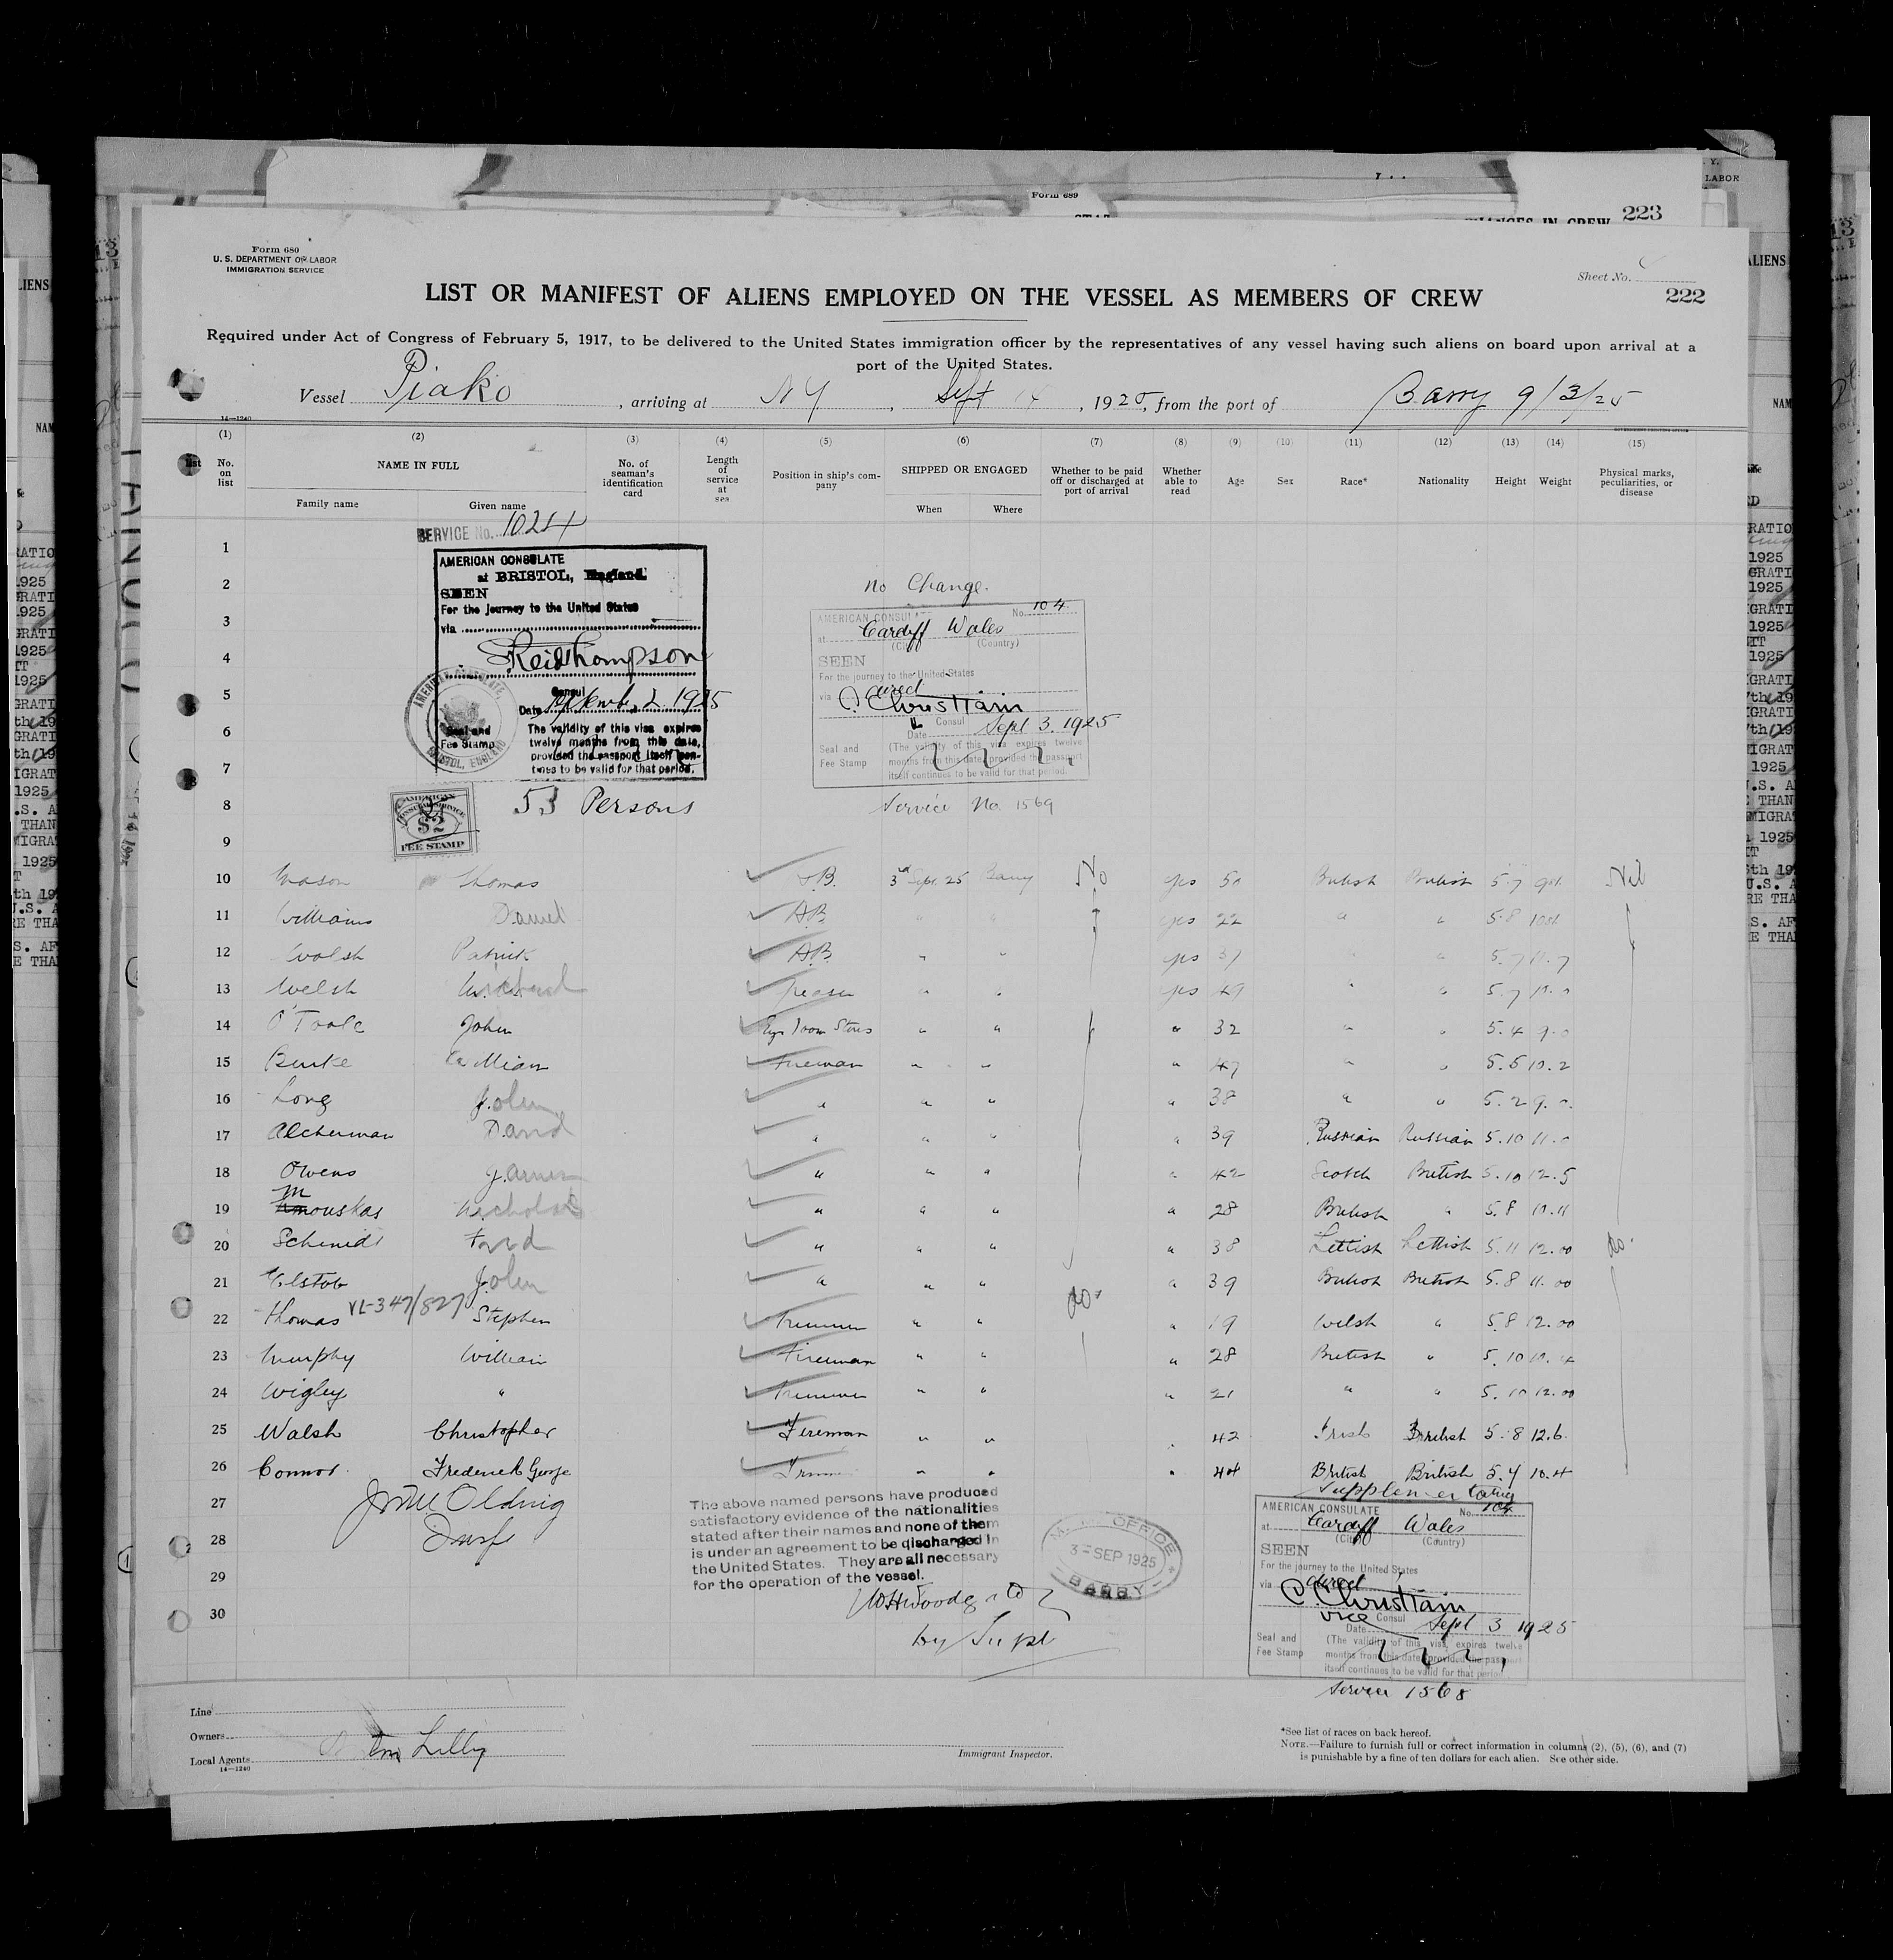 Form 689
CHANGES IN CREW 223
LABOR
Form 680
U. S. DEPARTMENT OF LABOR
IMMIGRATION SERVICE
Sheet No.
LIST OR MANIFEST OF ALIENS EMPLOYED ON THE VESSEL AS MEMBERS OF CREW
222
Required under Act of Congress of February 5, 1917, to be delivered to the United States immigration officer by the representatives of any vessel having such aliens on board upon arrival at a
port of the United States.
Vessel Piako, arriving at N Y, Sept 14, 1925, from the port of Barry 9/3/25
14—1240
(1) (2) (3) (4) (5) (6) (7) (8) (9) (10) (11) (12) (13) (14) (15)
No. on list NAME IN FULL No. of seaman's identification card Length of service at sea Position in ship's company SHIPPED OR ENGAGED Whether to be paid off or discharged at port of arrival Whether able to read Age Sex Race* Nationality Height Weight Physical marks, peculiarities, or disease
Family name Given name When Where
SERVICE No. 10214
1
AMERICAN CONSULATE
at BRISTOL, England.
2 no Change.
SEEN
For the journey to the United States
3
via
AMERICAN CONSULATE No. 104
at Cardiff Wales
(City) (Country)
4
SEEN
For the journey to the United States
via direct
5
C. Christiani
Consul
Date 2 1925
Consul
Date Sept 3. 1925
6
Seal and
Fee Stamp
The validity of this visa expires
twelve months from this date,
provided the passport itself continues
to be valid for that period.
AMERICAN CONSULATE, BRISTOL, ENGLAND
7
Seal and
Fee Stamp
(The validity of this visa expires twelve
months from this date provided the passport
itself continues to be valid for that period.
8 53 Persons Service No 1569
AMERICAN
CONSULAR SERVICE
$2
FEE STAMP
9
10 Mason Thomas A.B. 3rd Sept. 25 Barry No yes 50 British British 5.7 9st. Nil
11 Williams Daniel A.B. " " yes 22 " " 5.8 10st
12 Walsh Patrick A.B. " " yes 37 " " 5.7 11.7
13 Welsh Michael Greaser " " yes 49 " " 5.7 10.0
14 O'Toole John Eng Room Stores " " " 32 " " 5.4 9.0
15 Burke William Fireman " " " 47 " " 5.5 10.2
16 Long John " " " " 38 " " 5.2 9.0.
17 Alcherman David " " " " 39 Russian Russian 5.10 11.0
18 Owens James " " " " 42 Scotch British 5.10 12.5
19 Mouskas Nicholas " " " " 28 British " 5.8 10.11
20 Schmidt Fred " " " " 38 Lettish Lettish 5.11 12.00 do.
21 Elstob John " " " " 39 British British 5.8 11.00
VL-347/827 do.
22 Thomas Stephen Trimmer " " " 19 Welsh " 5.8 12.00
23 Murphy William Fireman " " " 28 British " 5.10 10.4
24 Wigley " Trimmer " " " 21 " " 5.10 12.00
25 Walsh Christopher Fireman " " " 42 Irish British 5.8 12.6.
26 Connor Frederick George Trimmer " " " 44 British British 5.4 10.4
27
28
29
30
The above named persons have produced
satisfactory evidence of the nationalities
stated after their names and none of them
is under an agreement to be discharged in
the United States. They are all necessary
for the operation of the vessel.
by Supt
M. M. OFFICE
3 - SEP 1925
BARRY
Supplementary
AMERICAN CONSULATE No. 104
at Cardiff Wales
(City) (Country)
SEEN
For the journey to the United States
via direct
C. Christiani
Vice Consul
Date Sept 3 1925
Seal and
Fee Stamp
(The validity of this visa expires twelve
months from this date provided the passport
itself continues to be valid for that period.
Service 1568
Line
Owners
Local Agents Lilly
14—1240
Immigrant Inspector.
*See list of races on back hereof.
NOTE.—Failure to furnish full or correct information in columns (2), (5), (6), and (7)
is punishable by a fine of ten dollars for each alien. See other side.